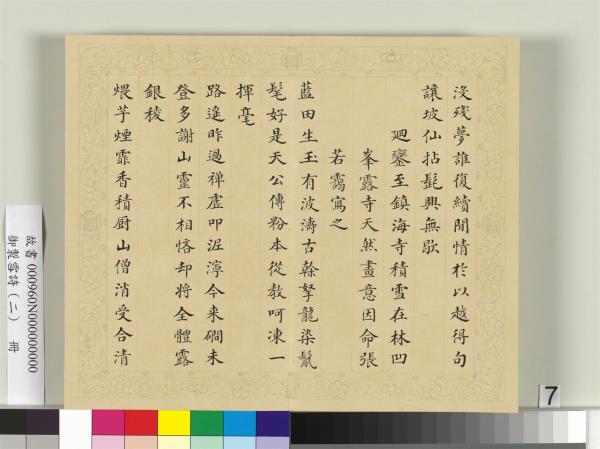 沒殘夢誰復續閒情於以越得句
讓坡仙拈髭興無歇
廻鑾至鎮海寺積雪在林凹
峯露寺天然畫意因命張
若靄寫之
藍田生玉有波濤古榦拏龍染鬣
髦好是天公傳粉本從教呵凍一
揮毫
路遙昨過禅虛叩泥濘今来磵未
登多謝山靈不相恡却将全體露
銀稜
煨芋煙霏香積厨山僧消受合清
故書 000960N000000000
御製雪詩（二） 冊
7